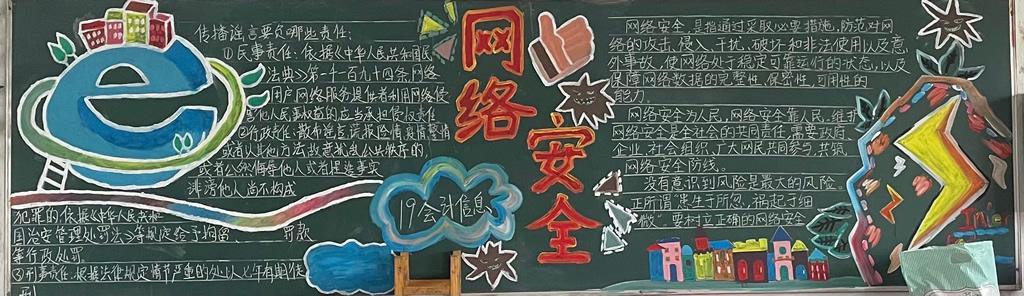 传播谣言要负哪些责任:
①民事责任:依据《中华人民共和国民
法典》第一千一百九十四条网络
用户网络服务提供者利用网络侵
害他人民事权益的应当承担侵权责任
②行政责任:散布谣言谎报险情疫情警情
或者以其他方法故意扰乱公共秩序的
或者公然侮辱他人或者捏造事实
诽谤他人尚不构成
犯罪的依据《中华人民共和
国治安管理处罚法》等规定给予拘留、罚款
等行政处罚
③刑事责任:根据法律规定情节严重的处以
网络安全
19会计信息
网络安全,是指通过采取必要措施,防范对网
络的攻击、侵入、干扰、破坏和非法使用以及意
外事故,使网络处于稳定可靠运行的状态,以及
保障网络数据的完整性、保密性、可用性的
能力。
网络安全为人民,网络安全靠人民,维护
网络安全是全社会的共同责任,需要政府
企业、社会组织、广大网民共同参与,共筑
网络安全防线。
没有意识到风险是最大的风险。
正所谓"患生于所忽,祸起于细
微"要树立正确的网络安全
Inter